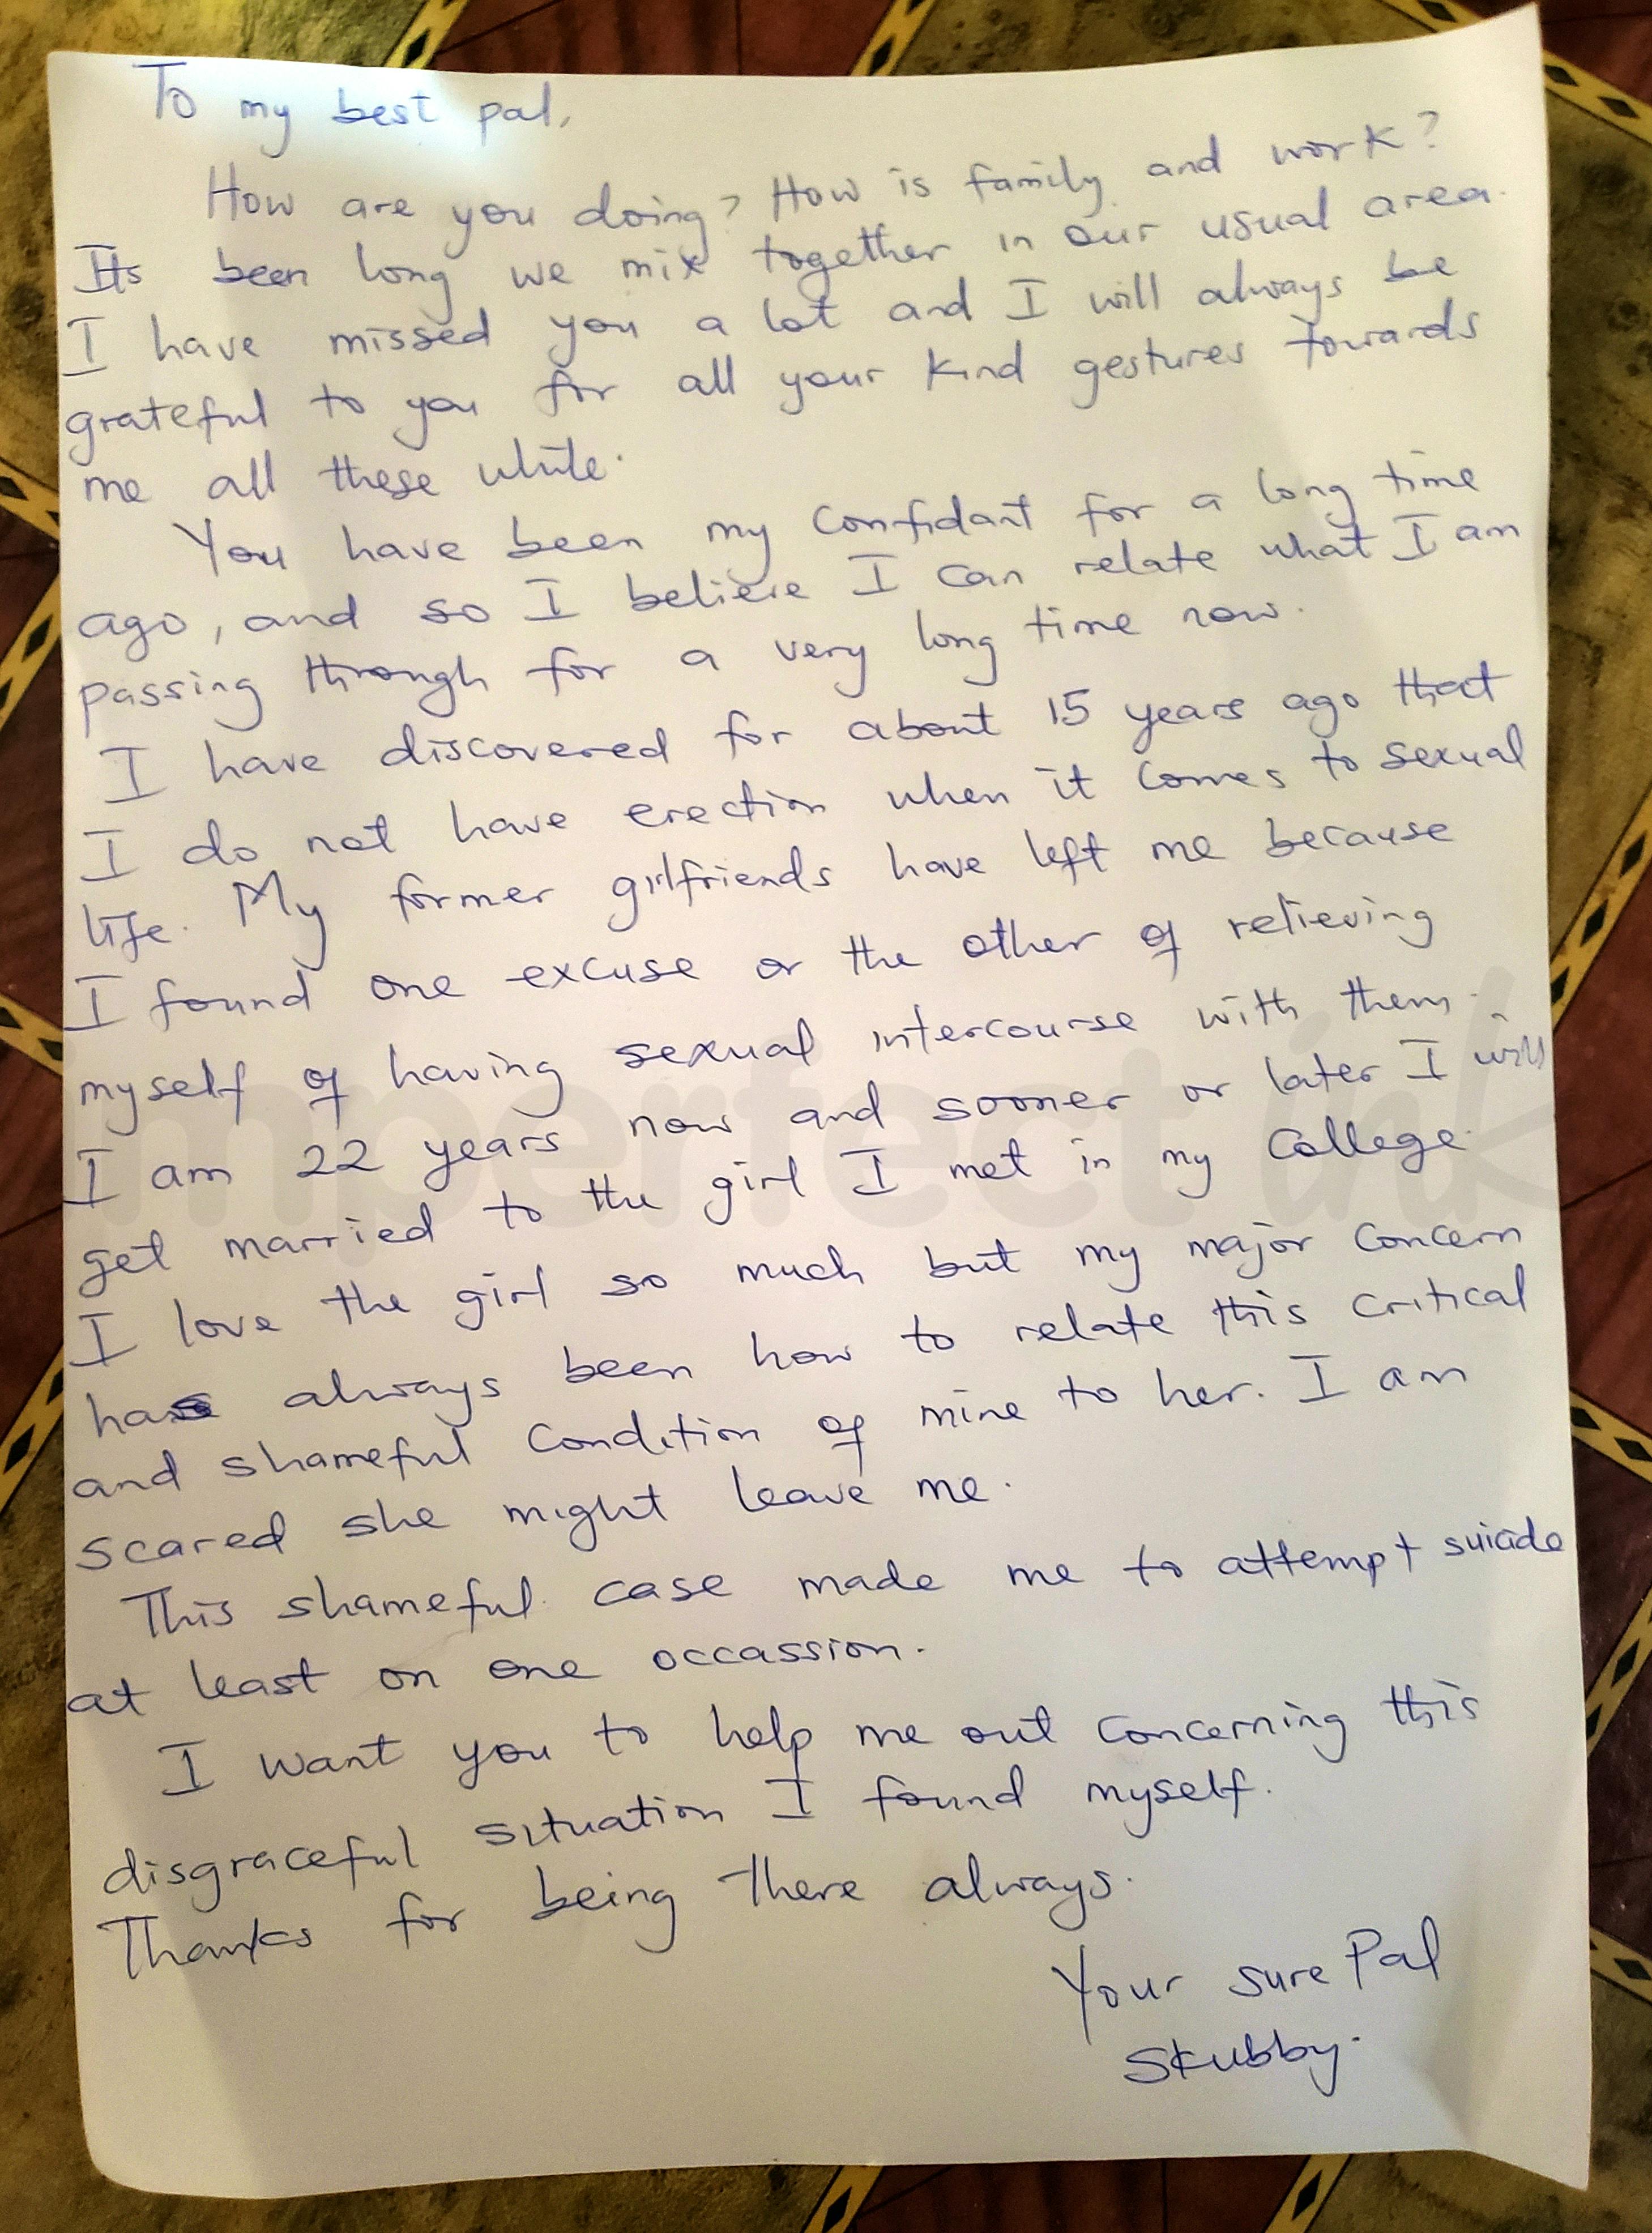 To my best pal,
How are you doing? How is family and work?
Its been long we mix together in our usual area.
I have missed you a lot and I will always be
grateful to you for all your kind gestures towards
me all these while.
You have been my confidant for a long time
ago, and so I believe I can relate what I am
passing through for a very long time now.
I have discovered for about 15 years ago that
I do not have erection when it comes to sexual
life. My former girlfriends have left me because
I found one excuse or the other of relieving
myself of having sexual intercourse with them.
I am 22 years now and sooner or later I will
get married to the girl I met in my College.
I love the girl so much but my major concern
has always been how to relate this critical
and shameful condition of mine to her. I am
scared she might leave me.
This shameful case made me to attempt suicide
at least on one occassion.
I want you to help me out concerning this
disgraceful situation I found myself.
Thanks for being there always.
Your sure Pal
Skubby.
imperfect ink